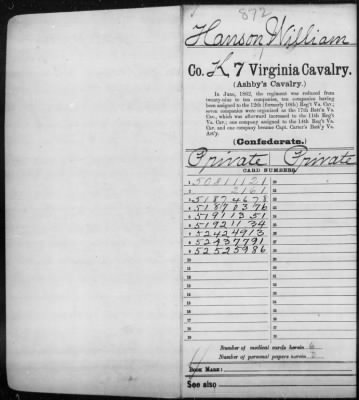 872
Hanson William
Co. K, 7 Virginia Cavalry.
(Ashby's Cavalry.)
In June, 1862, the regiment was reduced from
twenty-nine to ten companies, ten companies having
been assigned to the 12th (formerly 10th) Reg't Va. Cav.;
seven companies were organized as the 17th Batt'n Va.
Cav., which was afterward increased to the 11th Reg't
Va. Cav.; one company assigned to the 14th Reg't Va.
Cav. and one company became Capt. Carter's Batt'y Va.
Art'y.
(Confederate.)
Private Private
CARD NUMBERS.
1 50811121 20
2 2161 21
3 51874678 22
4 51870376 23
5 51911351 24
6 51921134 25
7 52424913 26
8 52437791 27
9 52525986 28
10 29
11 30
12 31
13 32
14 33
15 34
16 35
17 36
18 37
19 38
Number of medical cards herein 6
Number of personal papers herein 2
BOOK MARK:
See also